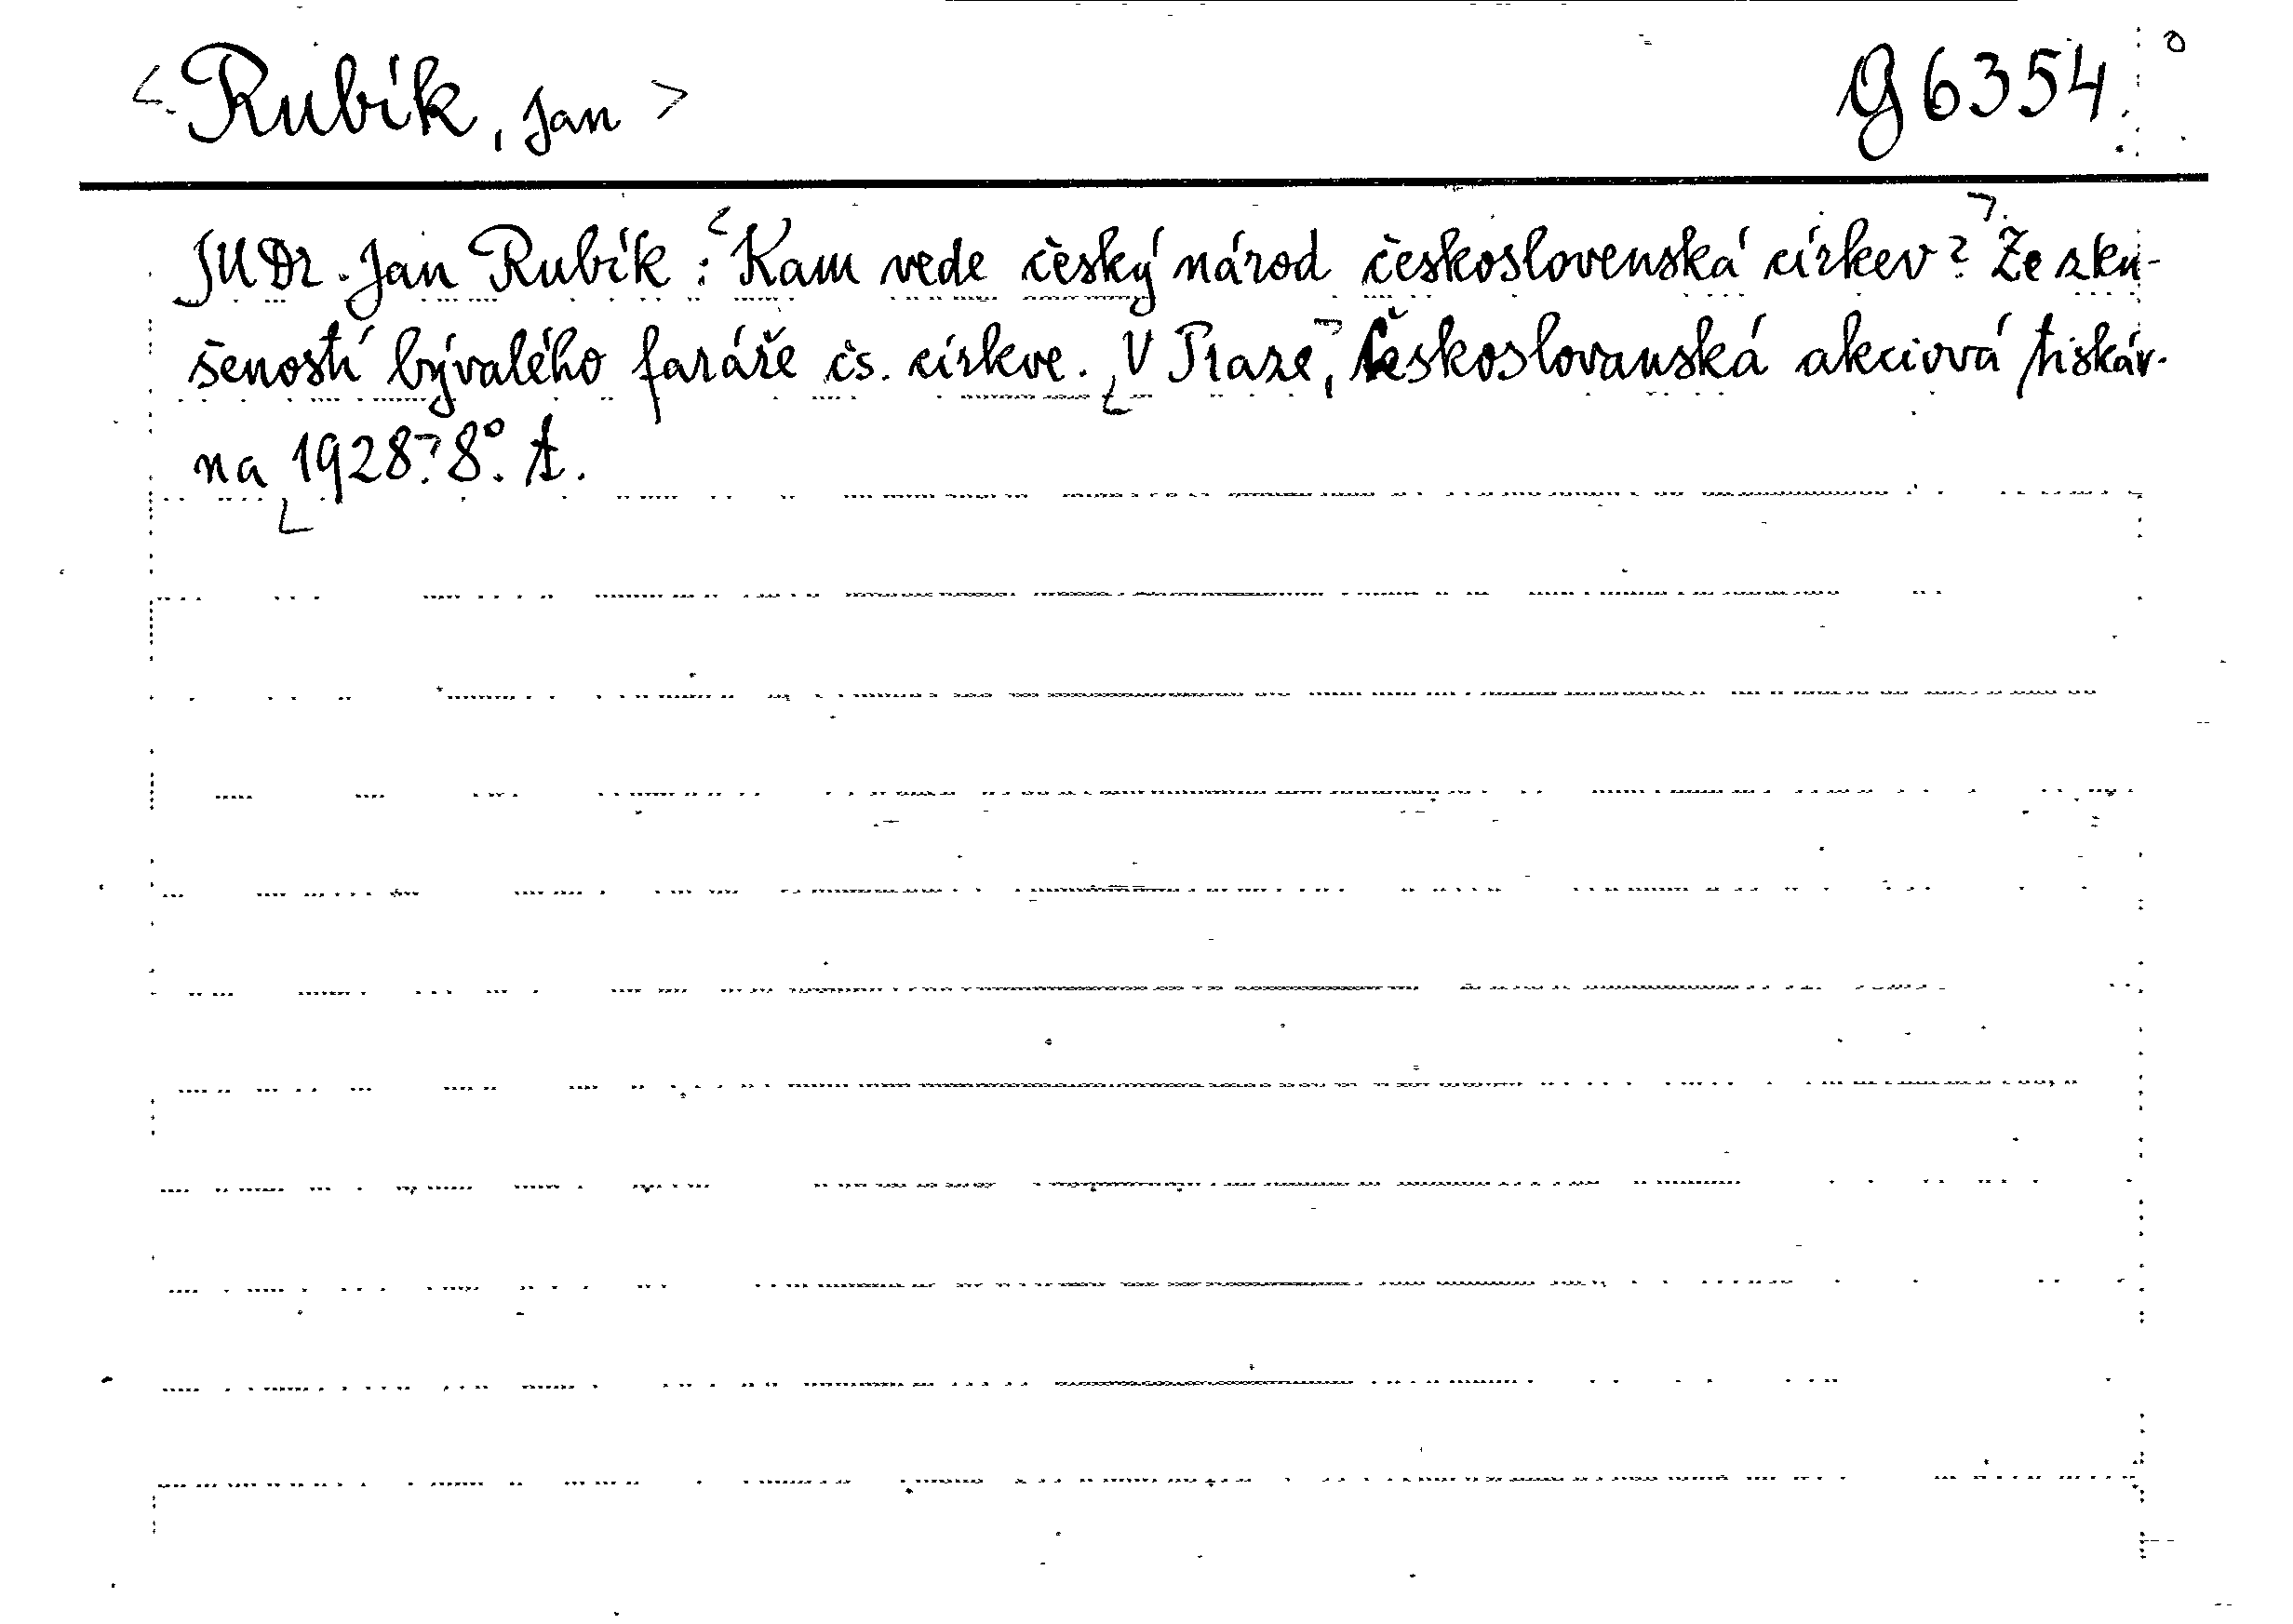 <Rubík, Jan> G 6354.
JUDr. Jan Rubík: Kam vede český národ československá církev? Ze zku-
šeností bývalého faráře čs. církve. V Praze, Českoslovanská akciová tiskár-
na 1928. 8°. A.